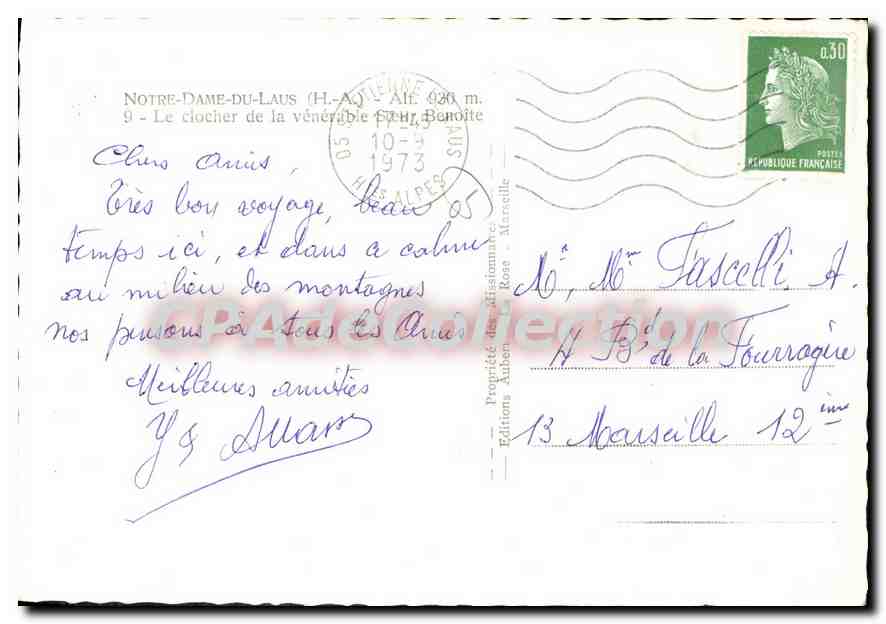 NOTRE-DAME-DU-LAUS (H.-A.) - Alt. 930 m.
9 - Le clocher de la vénérable Sœur Benoîte
05 ST ETIENNE LAUS
17-45
10-9
1973
HTES ALPES
0,30
POSTES
RÉPUBLIQUE FRANÇAISE
Chers Amis,
Très bon voyage, beau
temps ici, et dans ce calme
au milieu des montagnes
nos pensons à tous les Amis
Meilleures amitiés
05
Propriété des Missionnaires
Editions Aubert La Rose - Marseille
Mr, Mm Fascelli A.
A Bd de la Fourragère
13 Marseille 12ème
CPA de Collection